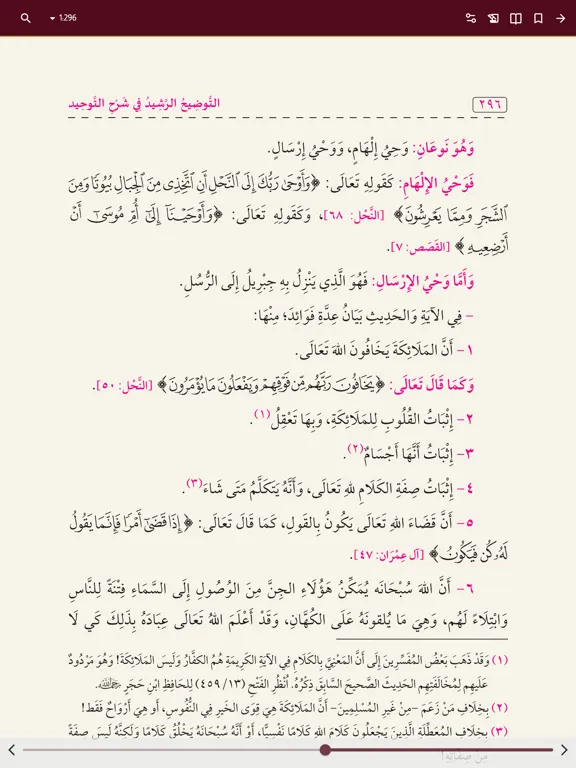 1.296
٢٩٦ التَّوضِيحُ الرَّشِيدُ فِي شَرْحِ التَّوحِيد
وَهُوَ نَوعَانِ: وَحِيُ إِلْهَامٍ، وَوَحْيُ إِرْسَالٍ.
فَوَحْيُ الإِلْهَامِ: كَقَولِهِ تَعَالَى: ﴿وَأَوْحَىٰ رَبُّكَ إِلَى النَّحْلِ أَنِ اتَّخِذِي مِنَ الْجِبَالِ بُيُوتًا وَمِنَ
الشَّجَرِ وَمِمَّا يَعْرِشُونَ﴾ [النَّحْل: ٦٨]، وَكَقَولِهِ تَعَالَى: ﴿وَأَوْحَيْنَا إِلَىٰ أُمِّ مُوسَىٰ أَنْ
أَرْضِعِيهِ﴾ [القَصَص: ٧].
وَأَمَّا وَحْيُ الإِرْسَالِ: فَهُوَ الَّذِي يَنْزِلُ بِهِ جِبْرِيلُ إِلَى الرُّسُلِ.
- فِي الآيَةِ وَالحَدِيثِ بَيَانُ عِدَّةِ فَوَائِدَ؛ مِنْهَا:
١- أَنَّ المَلَائِكَةَ يَخَافُونَ اللهَ تَعَالَى.
وَكَمَا قَالَ تَعَالَى: ﴿يَخَافُونَ رَبَّهُم مِّن فَوْقِهِمْ وَيَفْعَلُونَ مَا يُؤْمَرُونَ﴾ [النَّحْل: ٥٠].
٢- إِثْبَاتُ القُلُوبِ لِلمَلَائِكَةِ، وَبِهَا تَعْقِلُ(١).
٣- إِثْبَاتُ أَنَّهَا أَجْسَامٌ(٢).
٤- إِثْبَاتُ صِفَةِ الكَلَامِ للهِ تَعَالَى، وَأَنَّهُ يَتَكَلَّمُ مَتَى شَاءَ(٣).
٥- أَنَّ قَضَاءَ اللهِ تَعَالَى يَكُونُ بِالقَولِ، كَمَا قَالَ تَعَالَى: ﴿إِذَا قَضَىٰ أَمْرًا فَإِنَّمَا يَقُولُ
لَهُ كُن فَيَكُونُ﴾ [آل عِمْرَان: ٤٧].
٦- أَنَّ اللهَ سُبْحَانَهُ يُمَكِّنُ هَؤُلَاءِ الجِنَّ مِنَ الوُصُولِ إِلَى السَّمَاءِ فِتْنَةً لِلنَّاسِ
وَابْتِلَاءً لَهُم، وَهِيَ مَا يُلقونَهُ عَلَى الكُهَّانِ، وَقَدْ أَعْلَمَ اللهُ تَعَالَى عِبَادَهُ بِذَلِكَ كَي لَا
(١) وَقَدْ ذَهَبَ بَعْضُ المُفَسِّرِينَ إِلَى أَنَّ المَعْنِيَّ بِالكَلَامِ فِي الآيَةِ الكَرِيمَةِ هُمُ الكفَّارُ وَلَيسَ المَلَائِكَةَ! وَهُوَ مَرْدُودٌ
عَلَيهِم لِمُخَالَفَتِهِم الحَدِيثَ الصَّحيحَ السَّابِقَ ذِكْرُهُ. اُنْظُرِ الفَتْحَ (١٣/ ٤٥٩) لِلحَافِظِ ابْنِ حَجَرٍ رحمه الله.
(٢) بِخِلَافِ مَنْ زَعَمَ -مِنْ غَيرِ المُسْلِمِينَ- أَنَّ المَلَائِكَةَ هِيَ قِوَى الخَيرِ فِي النُّفُوسِ، أَو هِيَ أَرْوَاحٌ فَقَط!
(٣) بِخِلَافِ المُعَطِّلَةِ الَّذِينَ يَجْعَلُونَ كَلَامَ اللهِ كَلَامًا نَفْسِيًّا، أَوْ أَنَّهُ سُبْحَانَهُ يَخْلُقُ كَلَامًا وَلَكِنَّهُ لَيسَ صِفَةً
مِنْ صِفَاتِهِ!